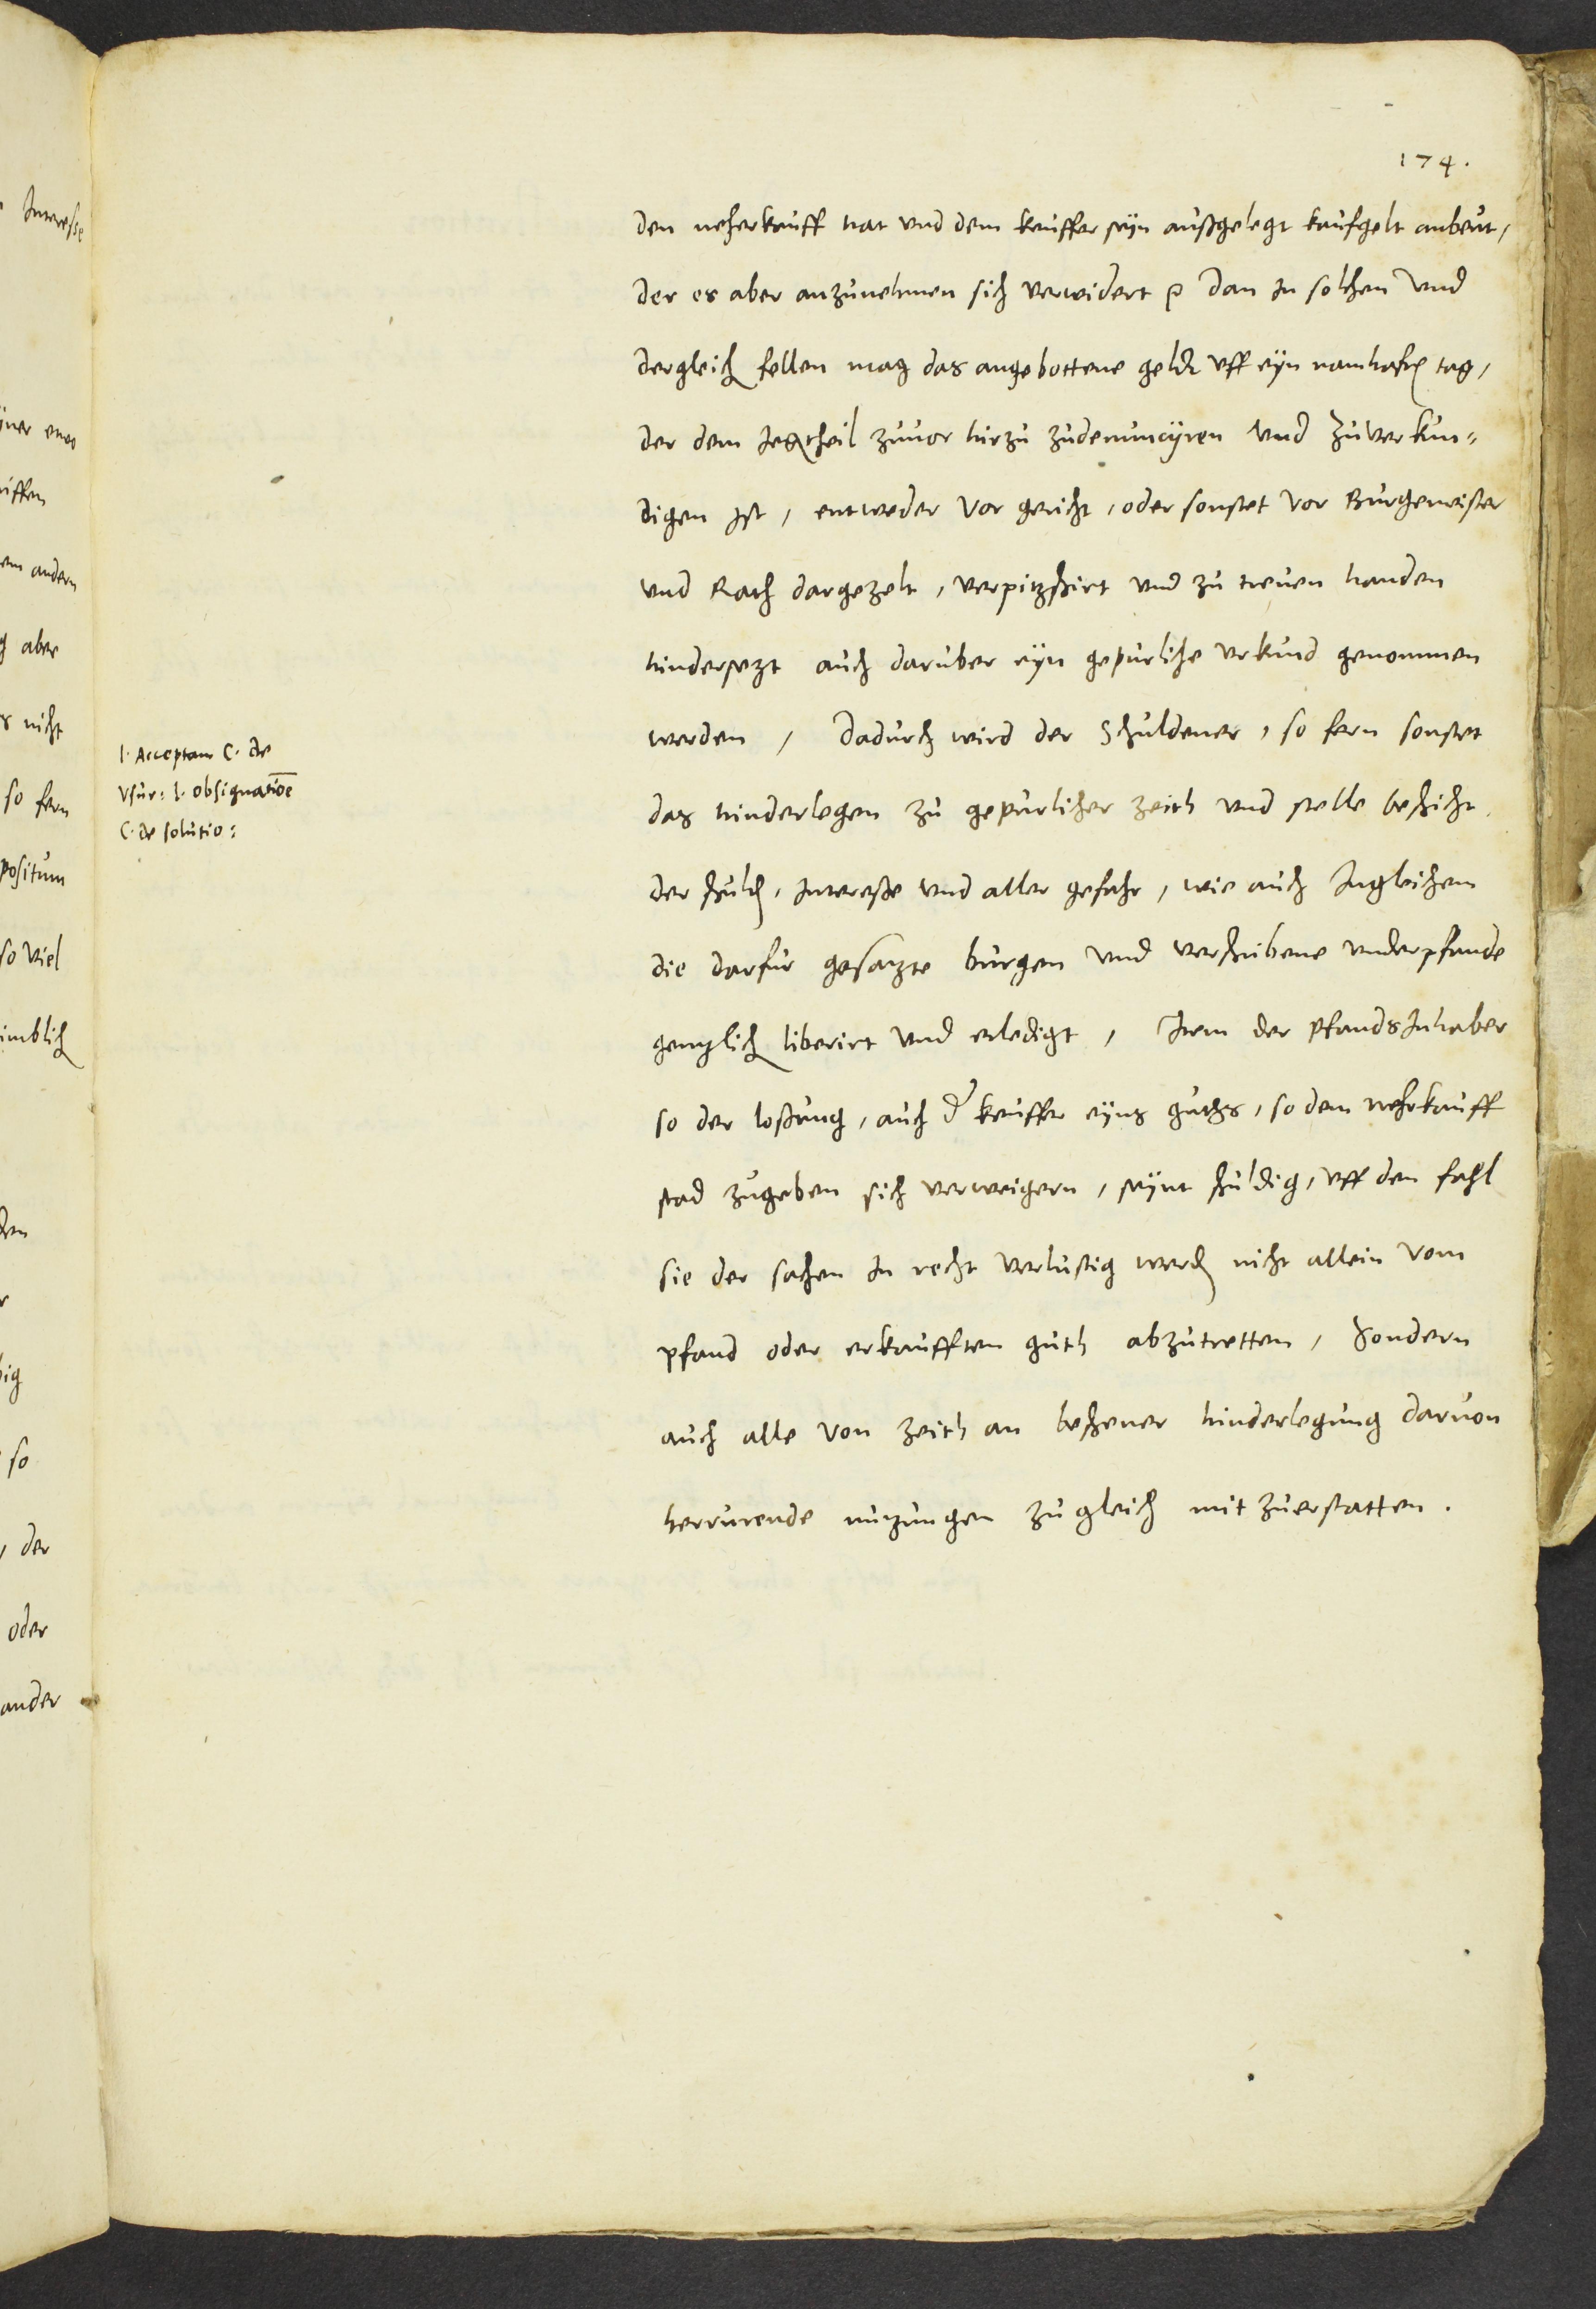 174.
den neherkauff hat vnd dem keuffer seyn außgelegt kaufgelt anbeut,
der es aber anzunehmen sich verwidert ꝛc Dan In solchen vnd
dergleich fellen mag das angebottene geldt vff eyn namhaften tag,
der dem Jegtheil zuuor hirzu zudenuncyren vnd zuverkun-
digen Ist, entweder vor gericht, oder sonstet vor Burgemeister
vnd Rath dargezelt, verpitzschirt vnd zu treuen handen
hindersezt auch daruber eyn gepurliche vrkund genommen
werden, Dadurch wird der Schuldener, so fern sonstet
das hinderlegen zu gepurlicher zeith vnd stelle beschicht
der schuld, Interesse vnd aller gefahr, wie auch Ingleichem
die darfur gesatzte burgen vnd verschribene vnderpfande
genzlich liberirt vnd erledigt, Item der Pfands Inhaber
so der loßung, auch der keuffer eyns guths, so dem nehrkauff
stad zugeben sich verweigern, seynt schuldig, vff den fahl
sie der sachen In recht verlustig werden nicht allein vom
pfand oder erkaufften guth abzutretten, Sondern
auch alle von zeith an beschener hinderlegung daruon
herrurende nuzungen zu gleich mit zuerstatten.
l. Acceptam C. de
vsur: l. obsignatioe
C. de solutio: